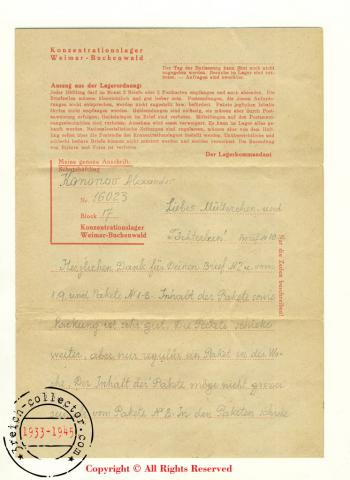 Konzentrationslager
Weimar-Buchenwald
Der Tag der Entlassung kann jetzt noch nicht
angegeben werden. Besuche im Lager sind ver-
boten. — Anfragen sind zwecklos.
Auszug aus der Lagerordnung:
Jeder Häftling darf im Monat 2 Briefe oder 2 Postkarten empfangen und auch absenden. Die
Briefzeilen müssen übersichtlich und gut lesbar sein. Postsendungen, die diesen Anforde-
rungen nicht entsprechen, werden nicht zugestellt bzw. befördert. Pakete jeglichen Inhalts
dürfen nicht empfangen werden. Geldsendungen sind zulässig, sie müssen aber durch Post-
anweisung erfolgen; Geldeinlagen im Brief sind verboten. Mitteilungen auf den Postanwei-
sungsabschnitten sind verboten, Annahme wird sonst verweigert. Es kann im Lager alles ge-
kauft werden. Nationalsozialistische Zeitungen sind zugelassen, müssen aber von dem Häft-
ling selbst über die Poststelle des Konzentrationslagers bestellt werden. Unübersichtliche und
schlecht lesbare Briefe können nicht zensiert werden und werden vernichtet. Die Zusendung
von Bildern und Fotos ist verboten.
Der Lagerkommandant
Meine genaue Anschrift:
Schutzhäftling
Kononow Alexander
Nr. 16023
Block 17
Konzentrationslager
Weimar-Buchenwald
Liebes Mütterchen und
Töchterlein! Brief N10
Nur die Zeilen beschreiben!
Herzlichen Dank für Deinen Brief N2 vom
1.9. und Pakete N 1-8. Inhalt der Pakete sowie
Packung ist sehr gut. Die Pakete schicke
weiter, aber nur regulär ein Paket in der Wo-
che. Der Inhalt der Pakete möge nicht
vom Pakete N 8. In den Paketen schicke
3reich-collector.com
1933-1945
Copyright © All Rights Reserved